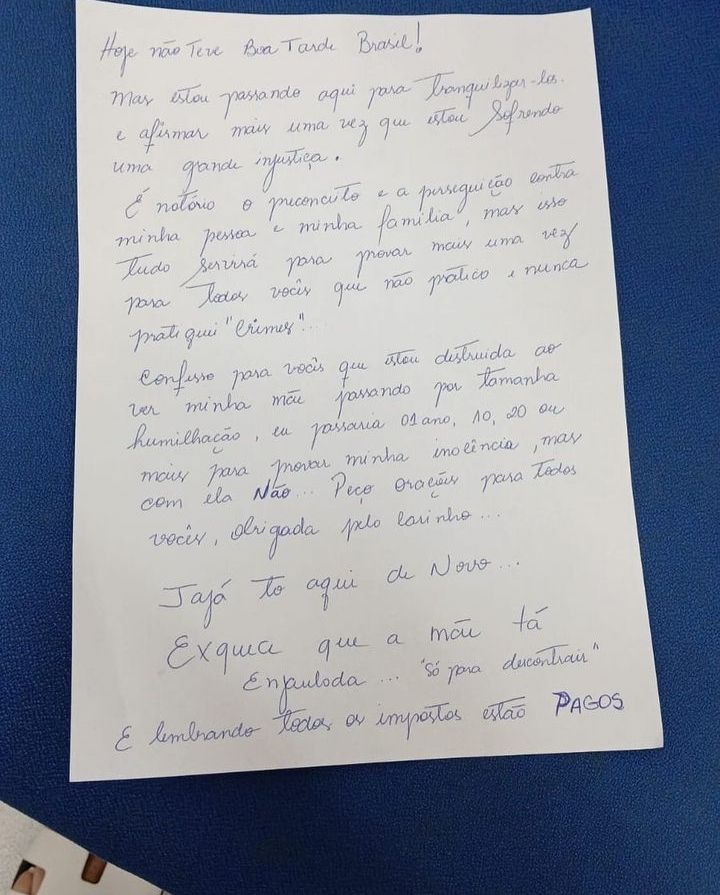 Hoje não Teve Boa Tarde Brasil!
Mas estou passando aqui para Tranquilizar-los.
e afirmar mais uma vez que estou Sofrendo
uma grande injustiça.
É notório o preconceito e a perseguição contra
minha pessoa e minha família, mas isso
tudo servirá para provar mais uma vez
para todos vocês que não pratico e nunca
pratiquei "Crimes"...
Confesso para vocês que estou destruida ao
ver minha mãe passando por tamanha
humilhação, eu passaria 01 ano, 10, 20 ou
mais para provar minha inocência, mas
com ela Não... Peço orações para todos
vocês, obrigada pelo Carinho...
Jajá to aqui de Novo...
Exquece que a mãe tá
Enjaulada... "Só para descontrair"
E lembrando todos os impostos estão PAGOS